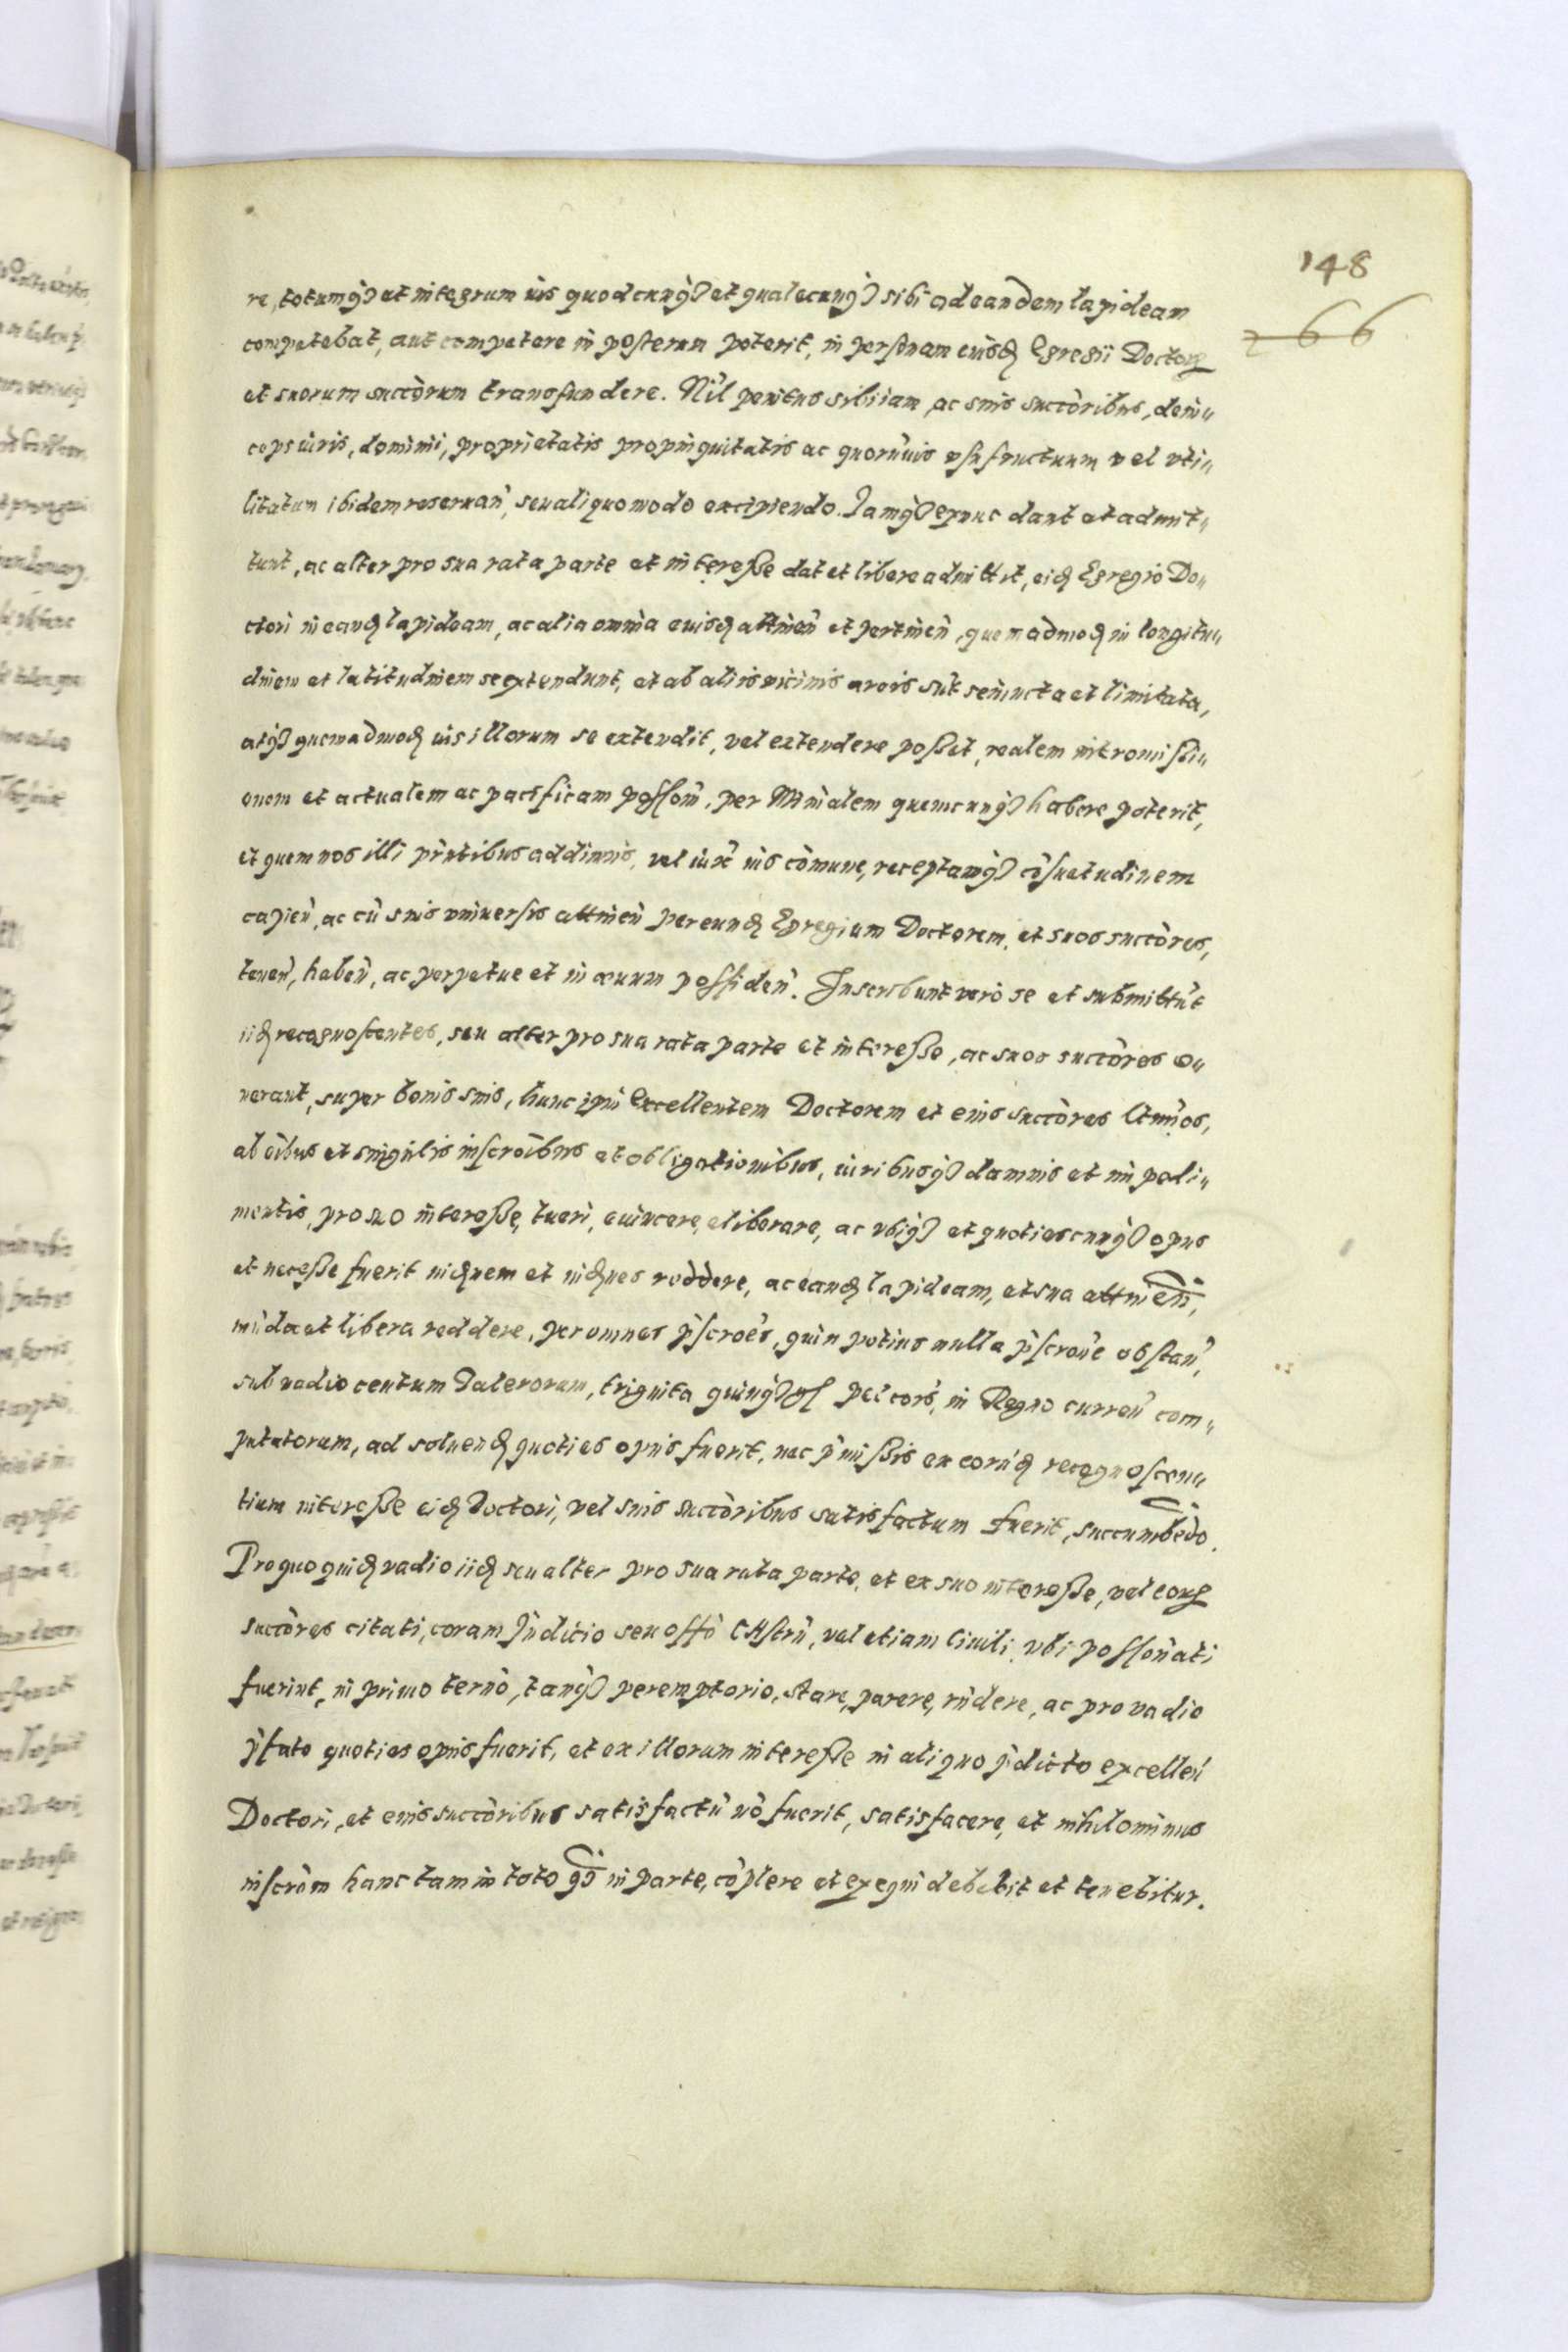 148
266
re, totumq́ꝫ et integrum ius quodcunq́ꝫ et qualecunq́ꝫ sibi ad eandem lapideam
competebat, aut competere in posterum poterit, in personam eiusd Egregii Doctor
et suorum succorum transfundere. Nil penitus sibi iam, ac suis succoribus, dein„
ceps iuris, dominii, proprietatis propinquitatis ac quoruuis vsufructuum vel vti„
litatum ibidem reseruan, seu aliquomodo excipiendo. Iamq́ꝫ exnuc dant et admit„
tunt, ac alter pro sua rata parte et interesse dat et libere admittit, eid Egregio Do„
ctori in eand lapideam, ac alia omnia euisd attinen et pertinen, quemadmod in longitu„
dinem et latitudinem se extendunt, et ab aliis vicinis areis sut seiuncta et limitata,
atq́ꝫ quemadmod ius illorum se extendit, vel extendere posset, realem intromissi„
onem et actualem ac pacificam possom, per Minalem quemcunq́ꝫ habere poterit,
et quem nos illi pntibus addimus, vel iux ius comune, receptamq́ꝫ cosuetudinem
capien, ac cu suis vniuersis attinen per eund Egregium Doctorem, et suos succores,
tenen, haben, ac perpetue et in æuum possiden. Inscribunt vero se et submittut
iid recognoscentes, seu alter pro sua rata parte et interesse, ac suos succores o„
nerant, super bonis suis, hunc ipm Excellentem Doctorem et eius succores ltimos,
ab oibus et singulis inscroibus et obligationibus, iuribusq́ꝫ damnis et impedi„
mentis, pro suo interesse, tueri, euincere, eliberare, ac vbiq́ꝫ et quotiescunq́ꝫ opus
et necesse fuerit indnem et indnes reddere, ac eand lapideam, et sua attinen,
muda et libera reddere, per omnes pscroes, quin potius nulla pscrone obstan,
sub vadio centum Talerorum, triginta quinq́ꝫ gl pol cors, in Regno curren com„
putatorum, ad soluend quoties opus fuerit, nec pmissis ex eorud recognoscen„
tium interesse eid Doctori, vel suis succoribus satisfactum fuerit, succumbedo.
Pro quo quid vadio iid seu alter pro sua rata parte, et ex suo interesse, vel eor
succores citati, coram Iudicio seu offo CAstrn, vel etiam Ciuili, vbi possonati
fuerint, in primo terno, tanq́ꝫ peremptorio, stare, parere, rndere, ac pro vadio
pfato quoties opus fuerit, et ex illorum interesse in aliquo pdicto excellen
Doctori, et eius succoribus satisfactu no fuerit, satisfacere, et nihilominus
inscrom hanc tam in toto qꝫ in parte, coplere et exequi debebit et tenebitur.